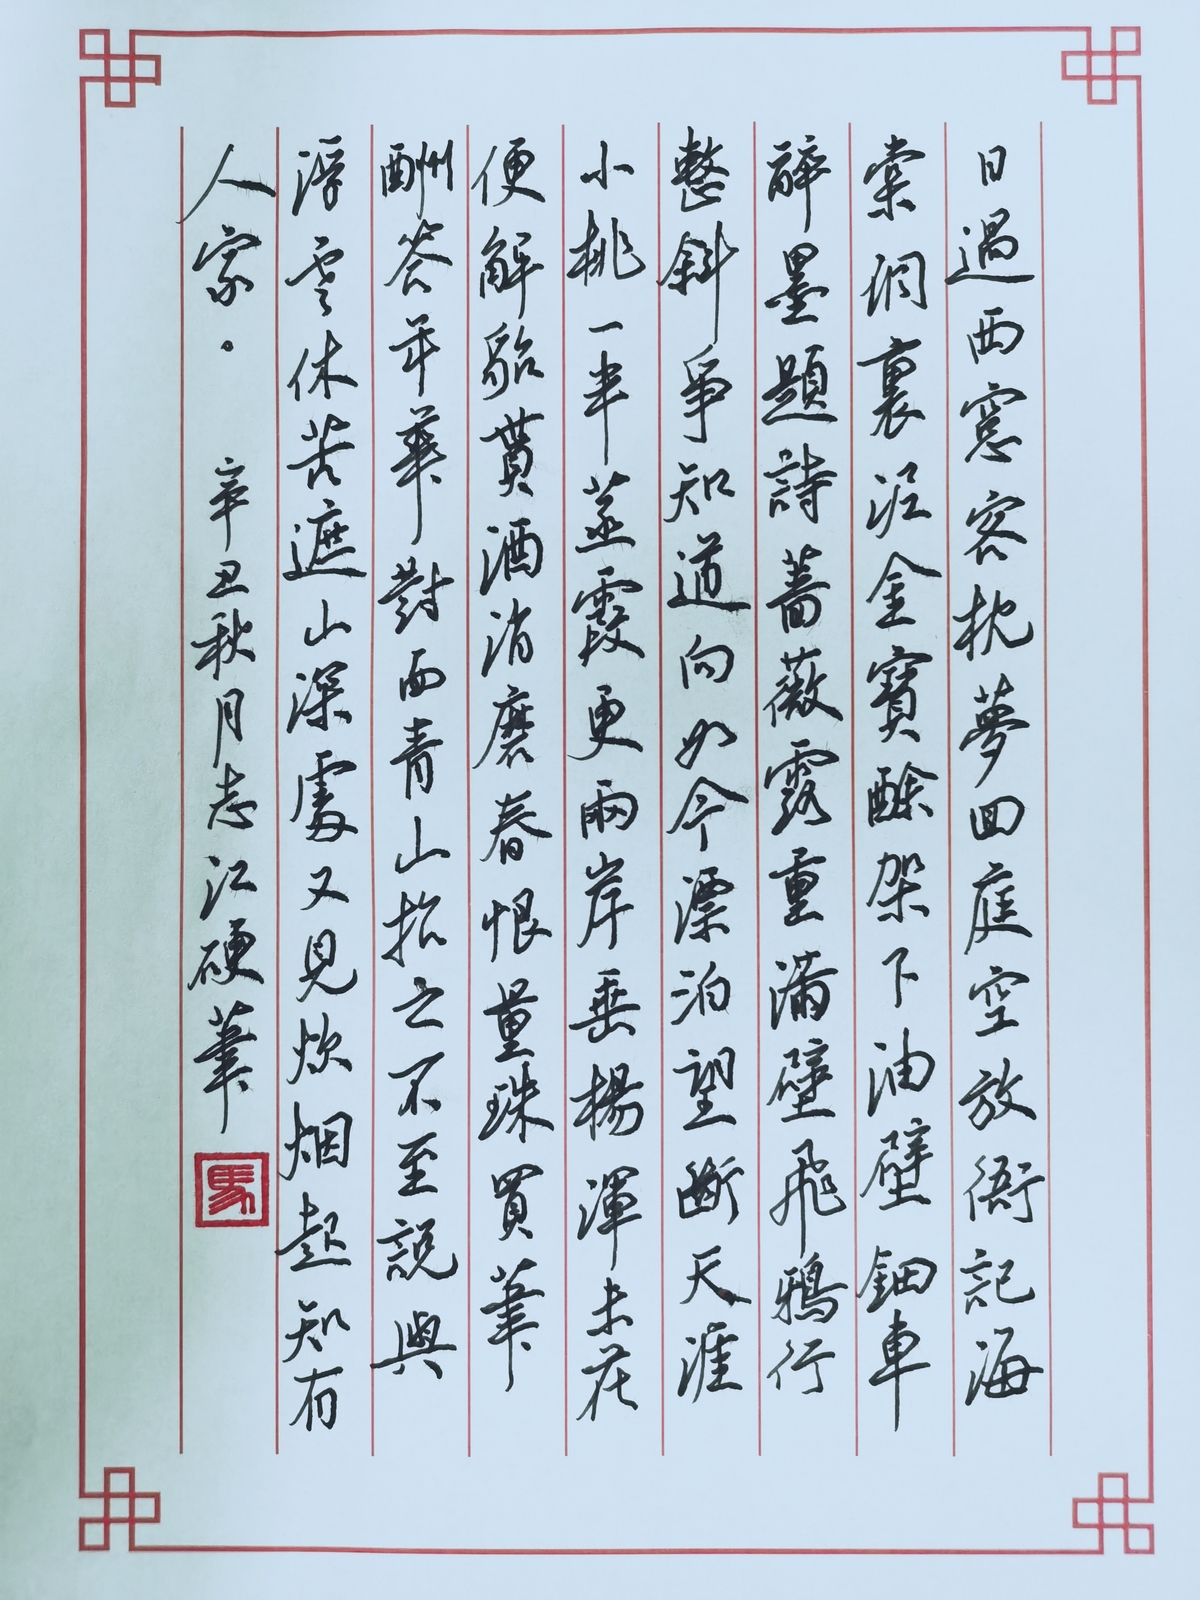 日過西窓客枕夢回庭空放衙記海
棠洞裏泥金寶酴架下油壁鈿車
醉墨題詩薔薇露重滿壁飛鴉行
整斜爭知道向如今漂泊望斷天涯
小桃一半蒸霞更兩岸垂楊渾未花
便解貂貰酒消磨春恨量珠買筆
酬答年華對面青山招之不至說與
浮雲休苦遮山深處又見炊烟起知有
人家。 辛丑秋月志江硬筆
馬